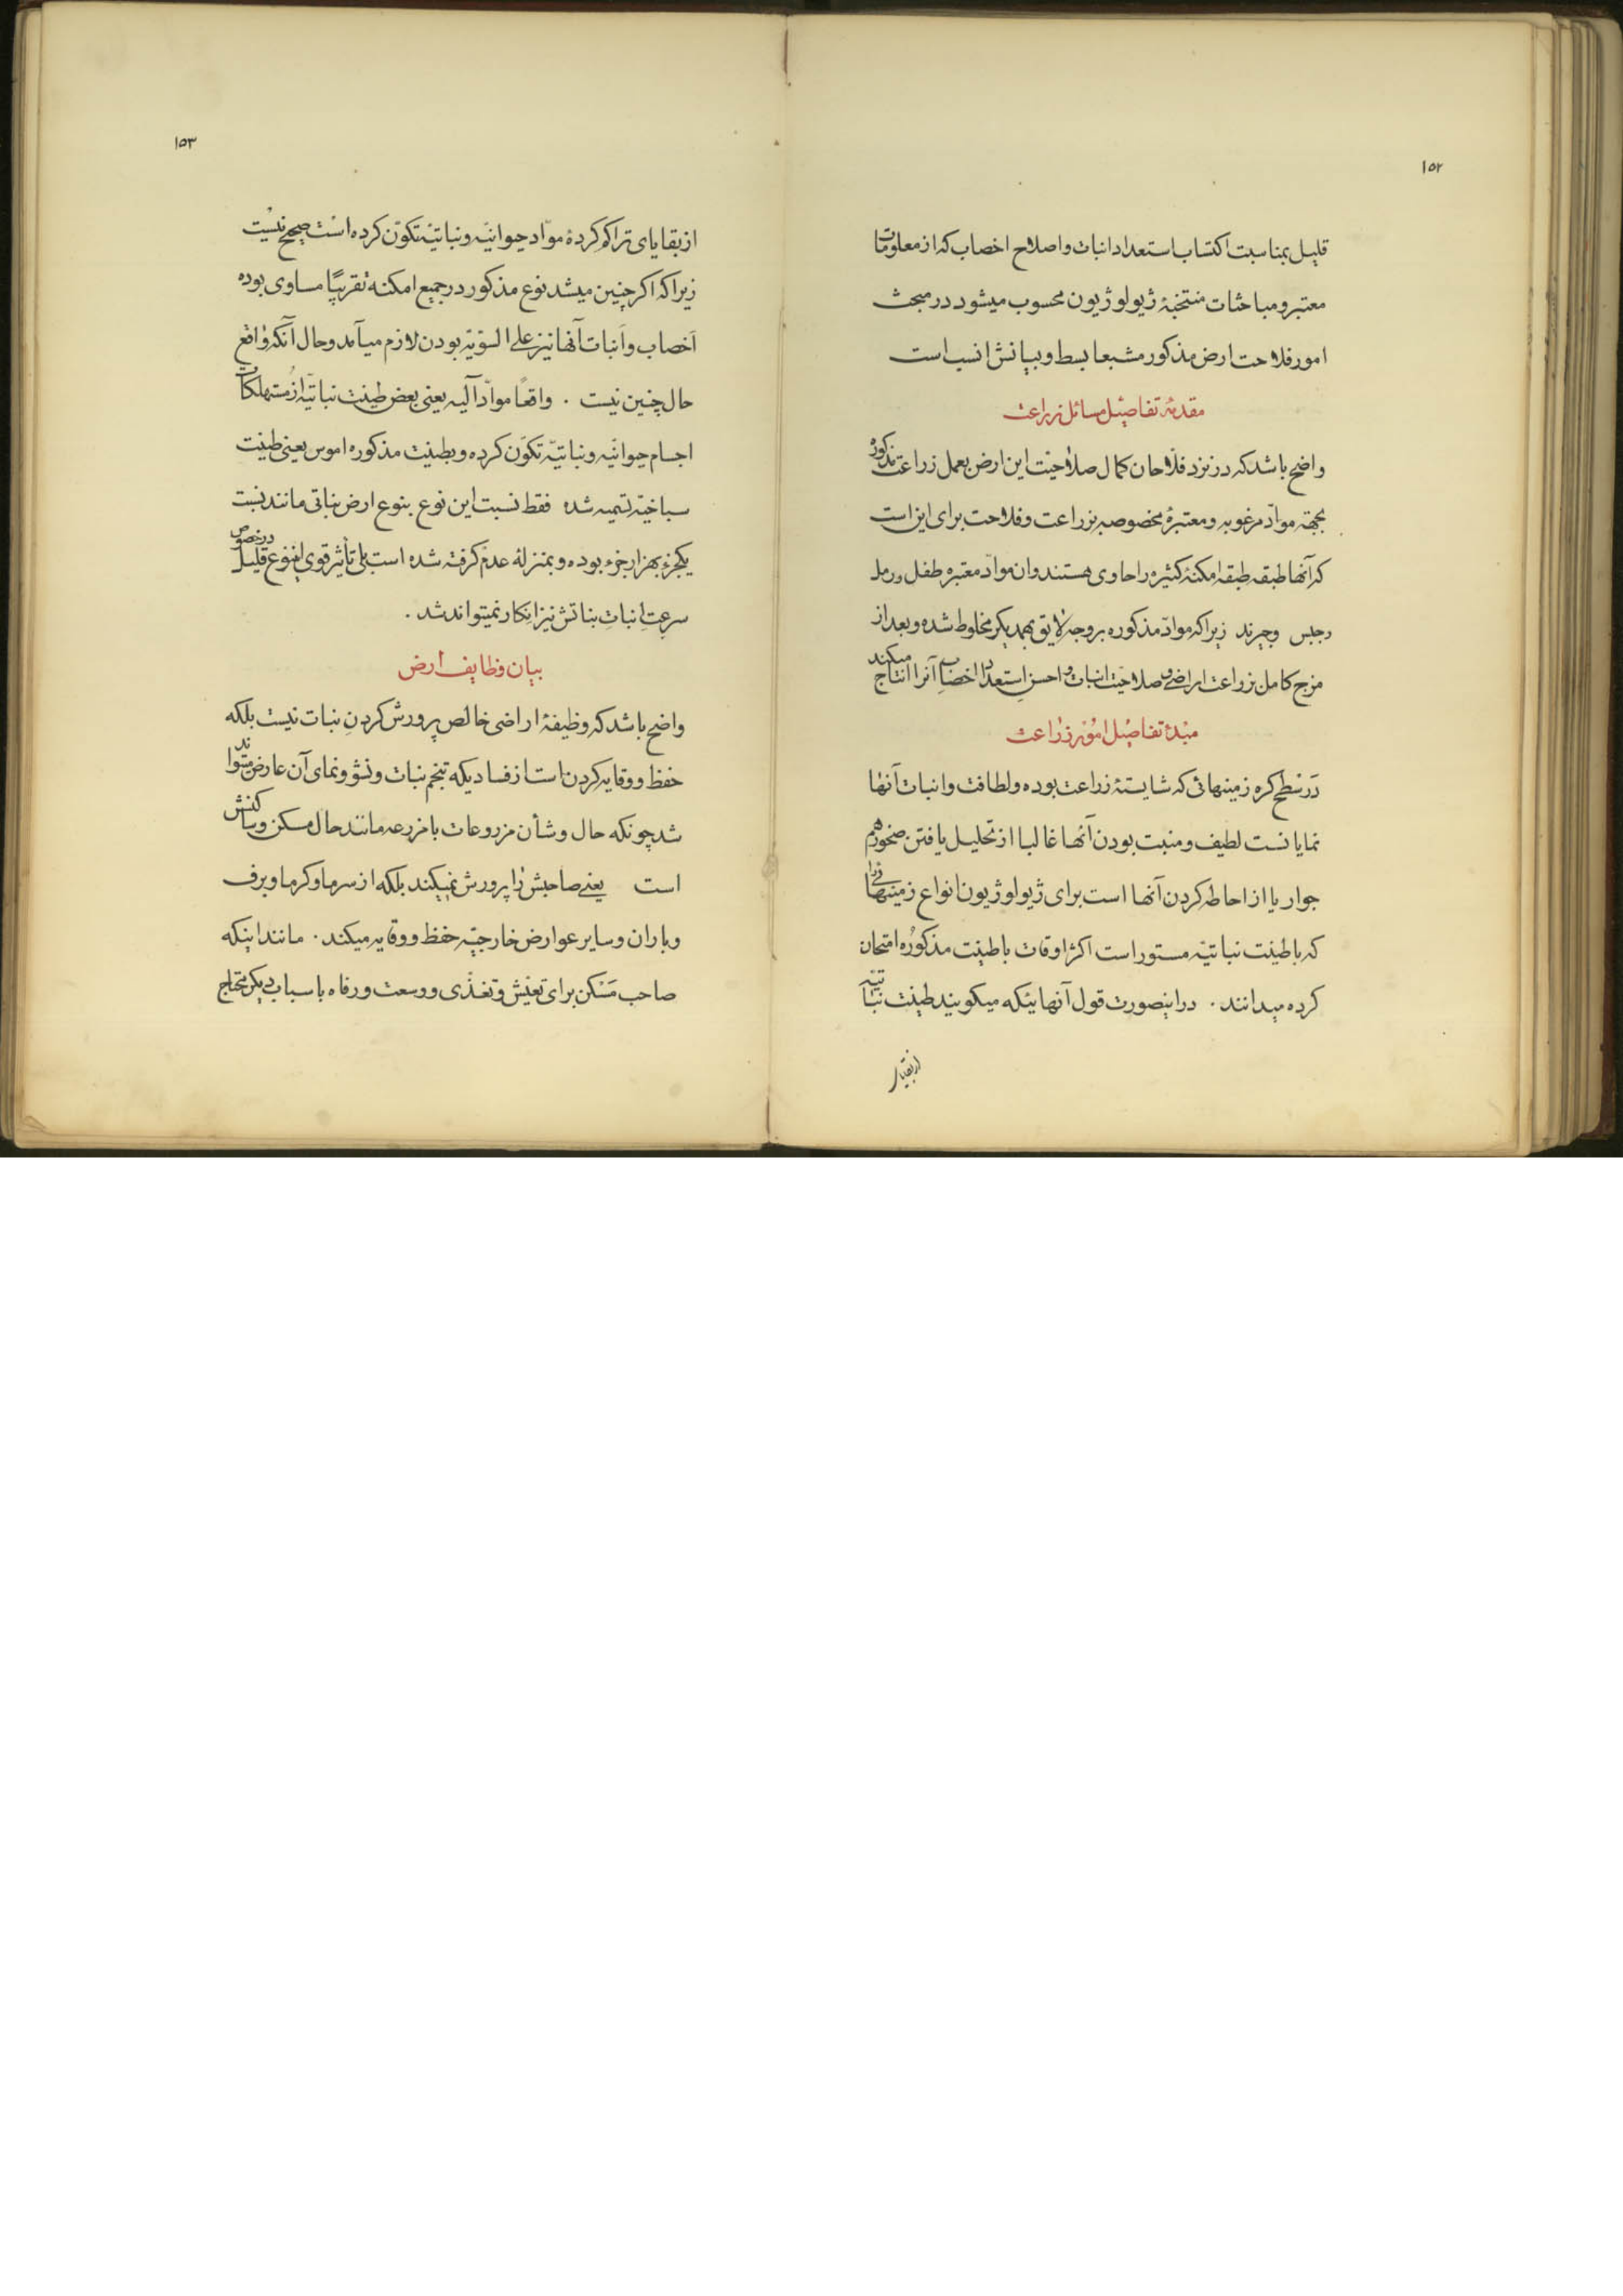 ۱۵۲
قلیل بمناسبت اکتساب استعداد انبات و اصلاح اخصاب که از معلومات
معتبر و مباحثات منتخبهٔ ژیولوژیون محسوب میشود در مبحث
امور فلاحت ارض مذکور مشبعا بسط و بیانش انسب است
مقدمهٔ تفاصیل مسائل زراعت
واضح باشد که در نزد فلاحان کمال صلاحیت این ارض بعمل زراعت مذکوره
بجهته موادّ مرغوبه و معتبرهٔ مخصوصه بزراعت و فلاحت برای این است
که آنها طبقه طبقه امکنهٔ کثیره را حاوی هستند و ان موادّ معتبره طفل و رمل
و جبس و جیرند زیرا که موادّ مذکوره بر وجه لایق بهمدیکر مخلوط شده و بعد از
مزج کامل بزراعت اراضی و صلاحیت انبات و احسن استعداد اخصاب آنرا انتاج میکند
مبدء تفاصیل امور زراعت
در سطح کره زمینهائی که شایستهٔ زراعت بوده و لطافت و انبات آنها
نمایانست لطیف و منبت بودن آنها غالبا از تحلیل یافتن صخور هم
جوار یا از احاطه کردن آنها است برای ژیولوژیون انواع زمینهائی را
که با طینت نباتیّه مستور است اکثر اوقات با طینت مذکوره امتحان
کرده میدانند . در اینصورت قول آنهاییکه میکویند طینت نباتیّه
از بقایا
۱۵۳
از بقایای تراکم کردهٔ موادّ حیوانیّه و نباتیّه تکوّن کرده است صحیح نیست
زیرا که اکر چنین میشد نوع مذکور در جمیع امکنه تقریبًا مساوی بوده
اَخصاب و اَنبات آنها نیز علی السّویّه بودن لازم میآمد و حال آنکه واقع
حال چنین نیست . واقعًا موادّ آلیه یعنی بعض طینت نباتیّه از مستهلکات
اجسام حیوانیّه و نباتیّه تکوّن کرده و بطینت مذکوره اموس یعنی طینت
سباخیّه تسمیه شده فقط نسبت این نوع بنوع ارض نباتی مانند نسبت
یکجزء بهزار جزء بوده و بمنزلهٔ عدم کرفته شده است بلی تأثیر قوی اینوع قلیل در خصوص
سرعتِ انباتِ نباتش نیز انکار نمیتواند شد .
بیان وظایف ارض
واضح باشد که وظیفهٔ اراضی خالص پرورش کردنِ نبات نیست بلکه
حفظ و وقایه کردن است از فسادیکه تبخم نبات و نشؤ و نمای آن عارض میتواند
شد چونکه حال و شأن مزروعات با مزرعه مانند حال مسکن و ساکنش
است یعنی صاحبش را پرورش نمیکند بلکه از سرما و کرما و برف
و باران و سایر عوارض خارجیّه حفظ و وقایه میکند . مانند اینکه
صاحب مَسْکن برای تعیّش و تغذّی و وسعت و رفاه با سباب دیکر محتاج